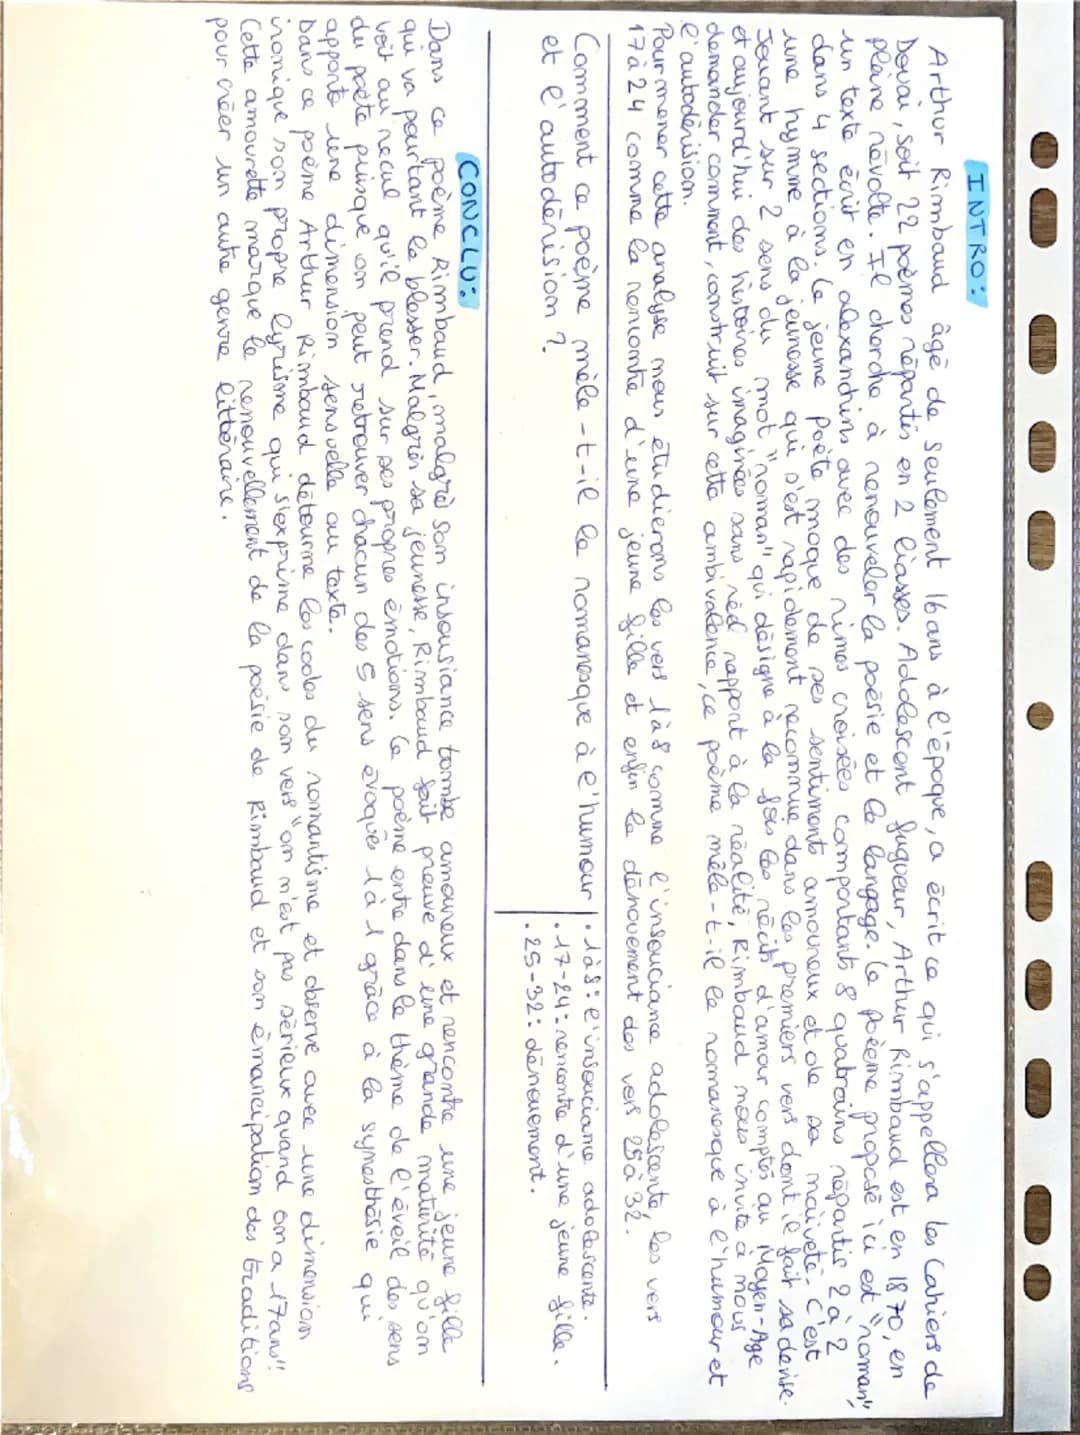 INTRO:
Arthur Rimbaud âgé de seulement 16 ans à l'époque, a écrit ce qui s'appellera les Cahiers de
Douai, soit 22 poèmes répartis en 2 liasses. Adolescent fugueur, Arthur Rimbaud est en 1870, en
pleine révolte. Il cherche à renouveler la poésie et le langage. Le poème proposé ici est "roman",
un texte écrit en alexandrins avec des rimes croisées comportants 8 quatrains répartis 2 à 2
dans 4 sections. Le jeune poète moque de ses sentiments amoureux et de sa naïveté. C'est
une hymne à la jeunesse qui s'est rapidement reconnue dans les premiers vers dont il fait sa devise.
Jouant sur 2 sens du mot "roman" qui désigne à la fois les récits d'amour comptés au Moyen-Age
et aujourd'hui des histoires imaginées sans réel rapport à la réalité, Rimbaud nous invite à nous
demander comment, construit sur cette ambivalence, ce poème mêle-t-il le romanesque à l'humour et
l'autodérision.
Pour mener cette analyse nous étudierons les vers 1 à 8 comme l'insouciance adolescente, les vers
17 à 24 comme la rencontre d'une jeune fille et enfin le dénouement des vers 25 à 32.
Comment ce poème mêle-t-il le romanesque à l'humour
et l'autodérision ?
• 1 à 8: l'insouciance adolescente.
• 17-24: rencontre d'une jeune fille.
• 25-32: dénouement.
CONCLU:
Dans ce poème Rimbaud, malgré son insousiance tombe amoureux et rencontre une jeune fille
qui va pourtant le blesser. Malgrés sa jeunesse, Rimbaud fait preuve d'une grande maturité qu'on
voit au recul qu'il prend sur ses propres émotions. Ce poème entre dans le thème de l'éveil des sens
du poète puisque on peut retrouver chacun des 5 sens évoqués 1 à 1 grâce à la synesthésie qui
apporte une dimension sensuelle au texte.
Dans ce poème Arthur Rimbaud détourne les codes du romantisme et observe avec une dimension
ironique son propre lyrisme qui s'exprime dans son vers "on n'est pas sérieux quand on a 17ans"!
Cette amourette marque le renouvellement de la poésie de Rimbaud et son émancipation des traditions
pour créer un autre genre littéraire.